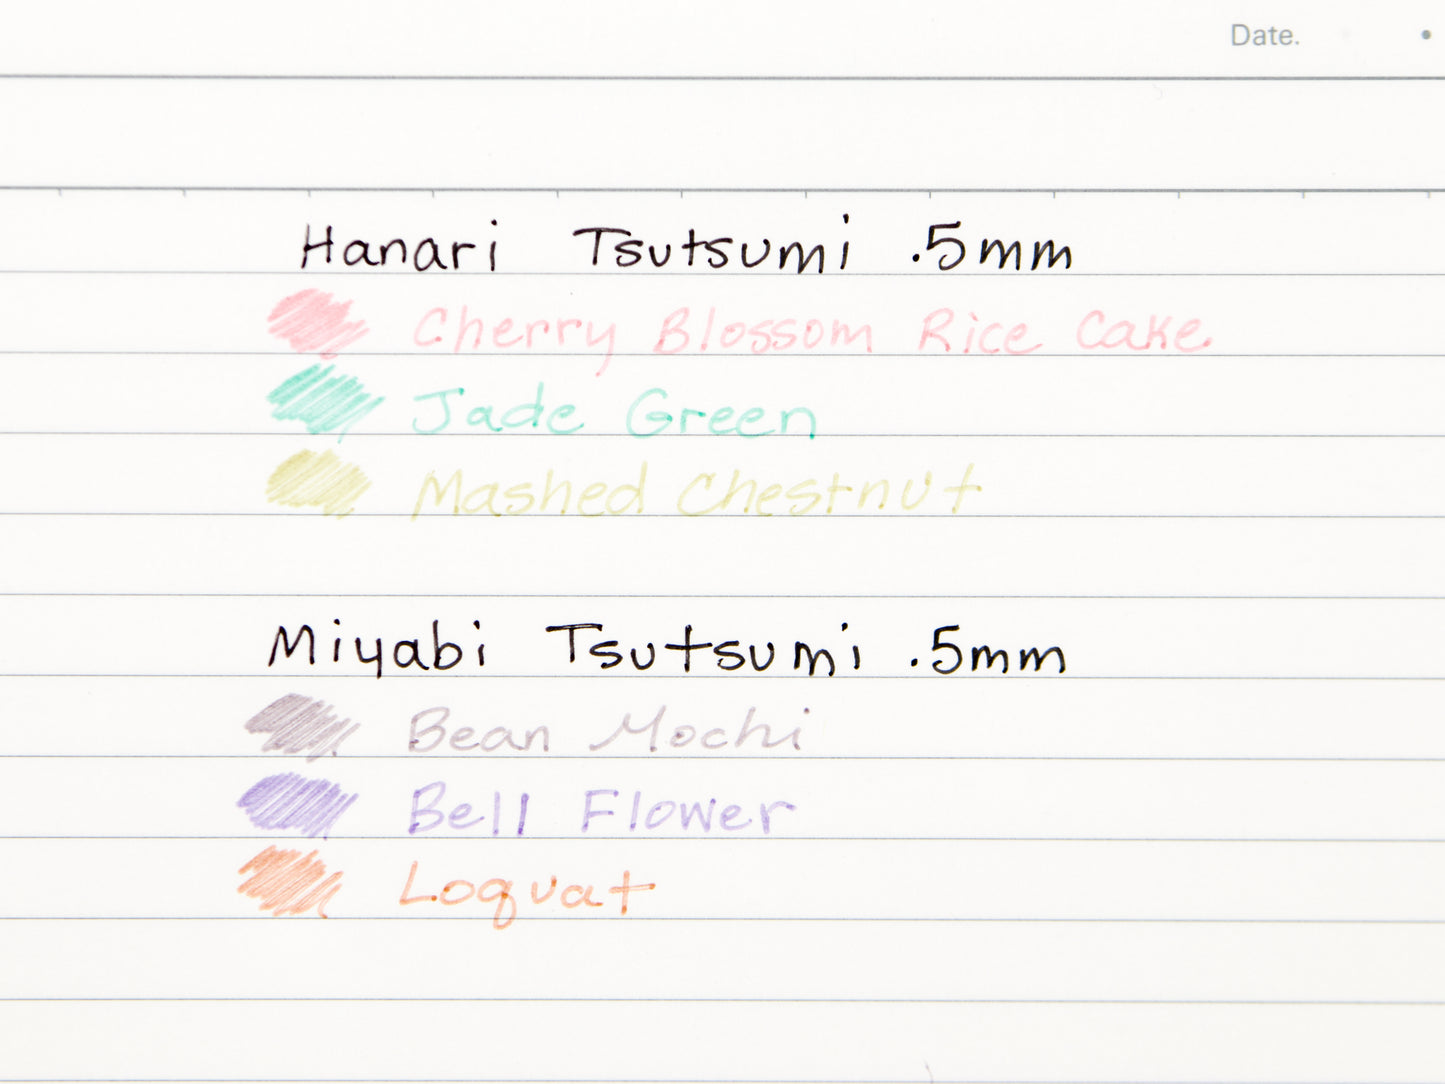 Date.
Hanari Tsutsumi .5mm
Cherry Blossom Rice Cake
Jade Green
Mashed Chestnut
Miyabi Tsutsumi .5mm
Bean Mochi
Bell Flower
Loquat